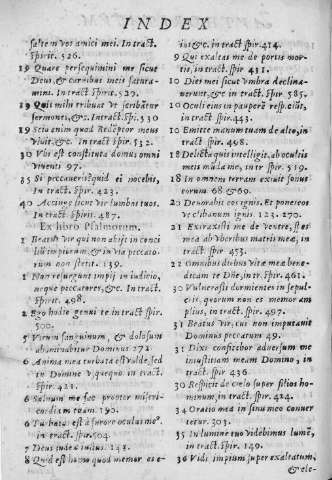 INDEX
saltem vos amici mei. In tract.
Spirit. 526.
19 Quare persequimini me sicut
Deus, & carnibus meis satura-
mini. In tract. Spirit. 529.
19 Quis mihi tribuat vt scribātur
sermones, &c. Intract. Spi. 530
19 Scio enim quod Redēptor meus
vivit, &c. In tract. spir. 532.
30 Vbi est constituta domus omni
viventi 97.
35 Si peccaueris quid ei nocebis,
In tract. Spir. 423.
40 Accinge sicut vir lumbos tuos.
In tract. Spirit. 487.
Ex libro Psalmorum.
1 Beatus vir qui non abijt in conci
lio impiorum, & in via peccato-
rum non stetit. 139.
1 Non resurgunt impij in iudicio,
neque peccatores, &c. In tract.
Spirit. 498.
2 Ego hodie genui te in tract spir
500.
5 Virum sanguinum, & dolosum
abominabitur Dominus 271.
6 Anima mea turbata est valde, sed
tu Domine vsquequo. in tract.
Spir. 421.
6 Saluum me fac propter miseri-
cordiam tuam. 190.
6 Turbatus est à furore oculus meo
in tract. spir. 504.
7 Deus iudex iustus. 143.
8 Quid est homo quod memor es e-
ius &c. in tract spir. 414.
9 Qui exaltas me de portis mor-
tis, in tract spir 431.
10 Dies mei sicut vmbra declina-
uerunt, & c. in tract spir. 585.
10 Oculi eius in pauperē resp. ciūt,
in tract spir. 443.
10 Emitte manum tuam de alto, in
tract spir. 408.
18 Delicta quis intelligit, ab ocultis
meis mūda me, in tr spir. 519.
18 In omnem terram exiuit sonus
eorum 68 & 69.
20 Deuorabis eos ignis. Et pones eos
vt clibanum ignis. 123. 270.
21 Extraxisti me de ventre, spes
mea ab vberibus matris mea, in
tract spir. 453.
22 Omnibus diebus vita mea bene-
dicam te Dñe, in tr. Spir. 463.
30 Vulnerati dormientes in sepul-
cris, quorum non es memor am
plius, in tract spir. 497.
31 Beatus vir, cui non imputauit
Dominus peccatum 49.
31 Dixi confitebor aduersum me
iniustitiam meam Domino, in
tract spir 436.
30 Respicit de cœlo super filios ho-
minum, in tract spir. 414.
34 Oratio mea in sinu meo conuer
tetur. 303.
35 In lumine tuo videbimus lumē,
in tract spir. 149.
36 Vidi impium super exaltatum,
& ele-